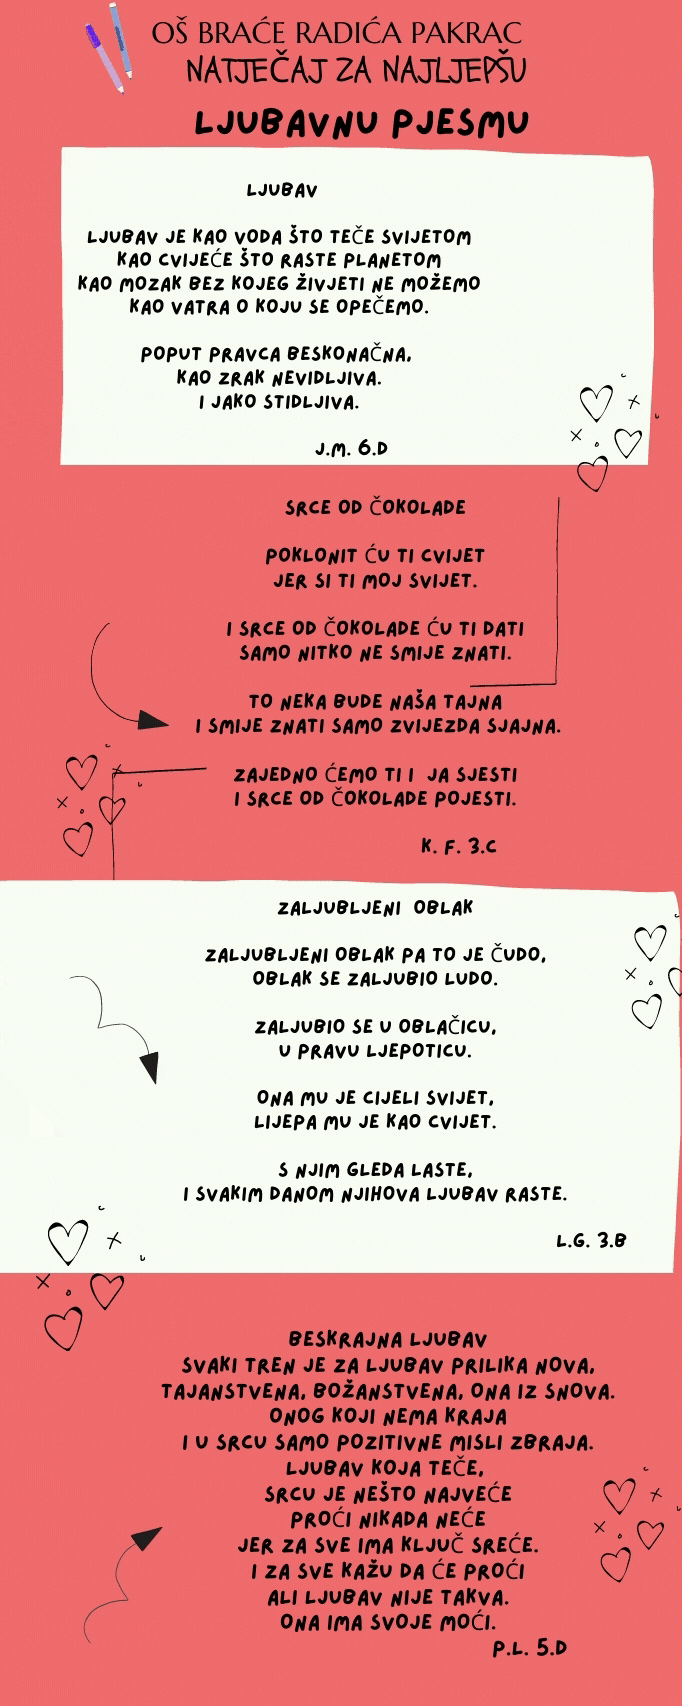 OŠ BRAĆE RADIĆA PAKRAC
NATJEČAJ ZA NAJLJEPŠU
LJUBAVNU PJESMU
LJUBAV
LJUBAV JE KAO VODA ŠTO TEČE SVIJETOM
KAO CVIJEĆE ŠTO RASTE PLANETOM
KAO MOZAK BEZ KOJEG ŽIVJETI NE MOŽEMO
KAO VATRA O KOJU SE OPEČEMO.
POPUT PRAVCA BESKONAČNA,
KAO ZRAK NEVIDLJIVA.
I JAKO STIDLJIVA.
J.M. 6.D
SRCE OD ČOKOLADE
POKLONIT ĆU TI CVIJET
JER SI TI MOJ SVIJET.
I SRCE OD ČOKOLADE ĆU TI DATI
SAMO NITKO NE SMIJE ZNATI.
TO NEKA BUDE NAŠA TAJNA
I SMIJE ZNATI SAMO ZVIJEZDA SJAJNA.
ZAJEDNO ĆEMO TI I JA SJESTI
I SRCE OD ČOKOLADE POJESTI.
K. F. 3.C
ZALJUBLJENI OBLAK
ZALJUBLJENI OBLAK PA TO JE ČUDO,
OBLAK SE ZALJUBIO LUDO.
ZALJUBIO SE U OBLAČICU,
U PRAVU LJEPOTICU.
ONA MU JE CIJELI SVIJET,
LIJEPA MU JE KAO CVIJET.
S NJIM GLEDA LASTE,
I SVAKIM DANOM NJIHOVA LJUBAV RASTE.
L.G. 3.B
BESKRAJNA LJUBAV
SVAKI TREN JE ZA LJUBAV PRILIKA NOVA,
TAJANSTVENA, BOŽANSTVENA, ONA IZ SNOVA.
ONOG KOJI NEMA KRAJA
I U SRCU SAMO POZITIVNE MISLI ZBRAJA.
LJUBAV KOJA TEČE,
SRCU JE NEŠTO NAJVEĆE
PROĆI NIKADA NEĆE
JER ZA SVE IMA KLJUČ SREĆE.
I ZA SVE KAŽU DA ĆE PROĆI
ALI LJUBAV NIJE TAKVA.
ONA IMA SVOJE MOĆI.
P.L. 5.D